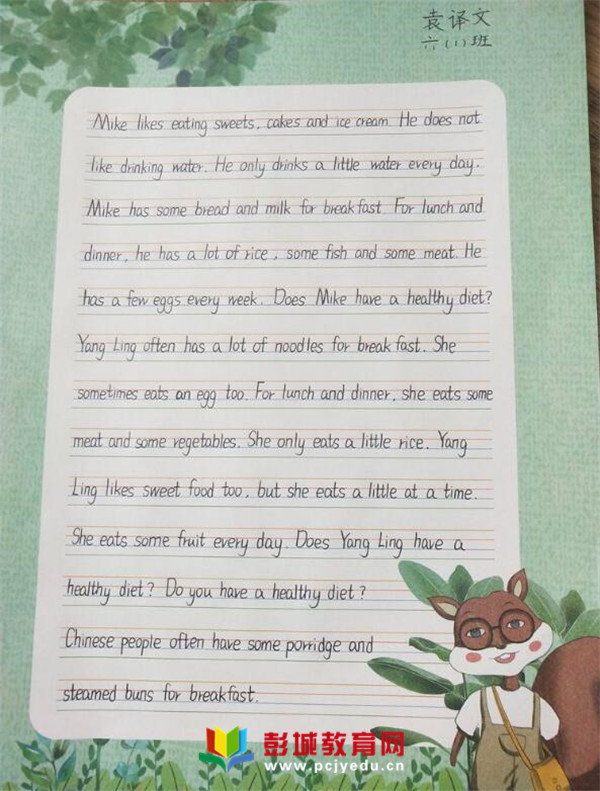 袁译文
六(1)班
Mike likes eating sweets, cakes and ice cream. He does not
like drinking water. He only drinks a little water every day.
Mike has some bread and milk for breakfast. For lunch and
dinner, he has a lot of rice, some fish and some meat. He
has a few eggs every week. Does Mike have a healthy diet?
Yang Ling often has a lot of noodles for breakfast. She
sometimes eats an egg too. For lunch and dinner, she eats some
meat and some vegetables. She only eats a little rice. Yang
Ling likes sweet food too, but she eats a little at a time.
She eats some fruit every day. Does Yang Ling have a
healthy diet? Do you have a healthy diet?
Chinese people often have some porridge and
steamed buns for breakfast.
彭城教育网
www.pcjyedu.cn